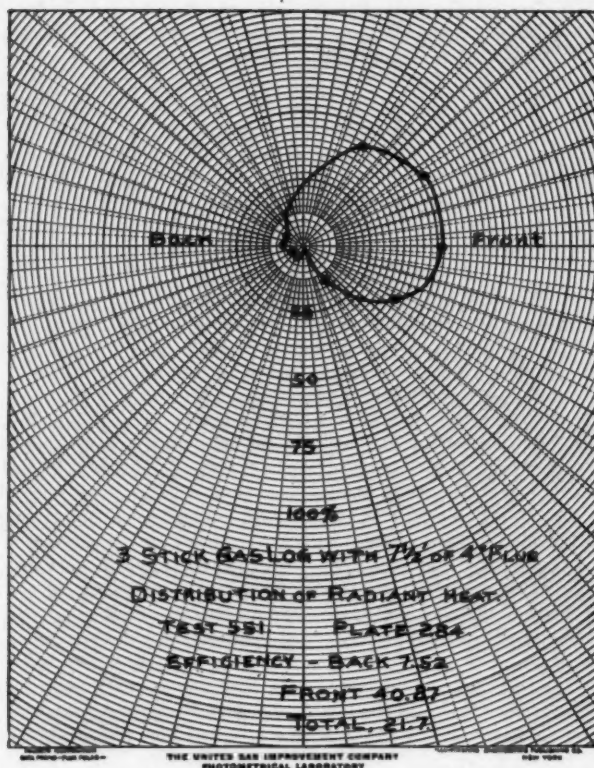 Back Front
50
75
100%
3 STICK GAS LOG WITH 7½' OF 4" FLUE
DISTRIBUTION OF RADIANT HEAT.
TEST 551. PLATE 284.
EFFICIENCY - BACK 7.52
FRONT 40.87
TOTAL, 21.7
THE UNITED GAS IMPROVEMENT COMPANY
NEW YORK
PHOTOMETRICAL LABORATORY